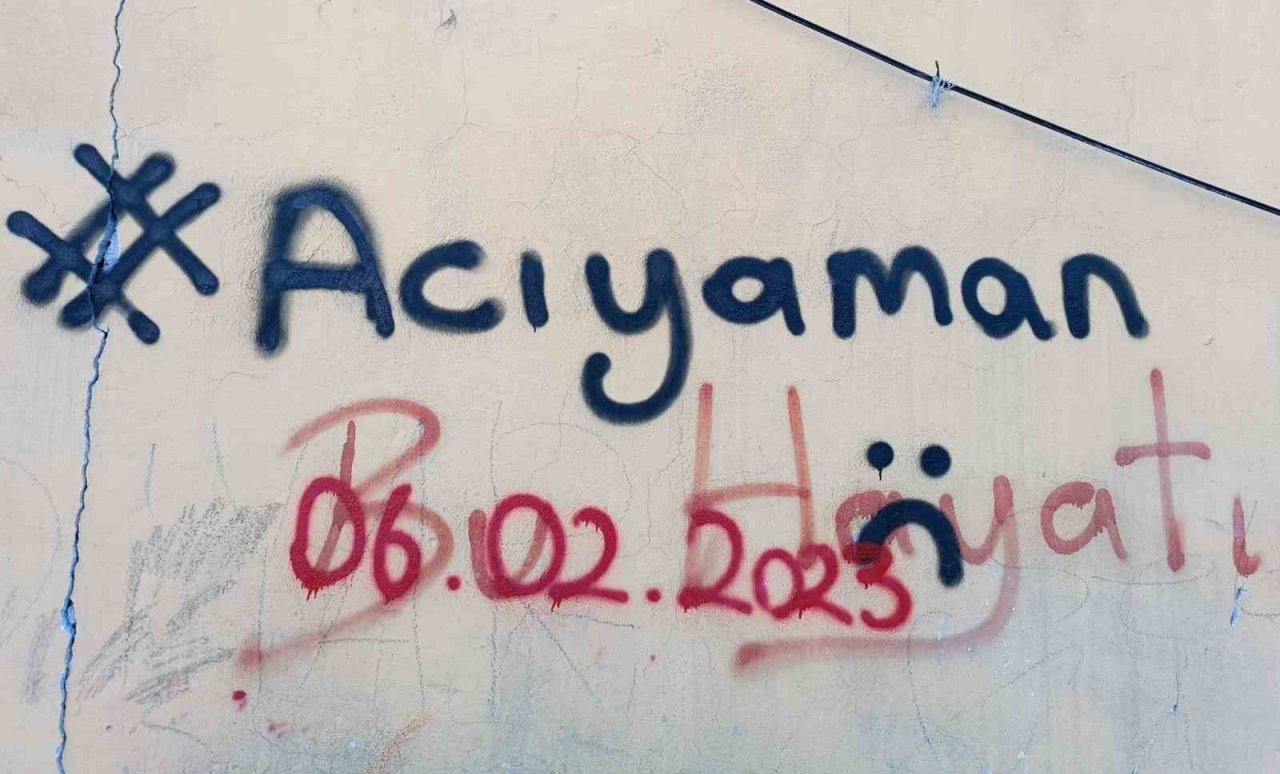 #Acıyaman
Bu Hayatı
06.02.2023